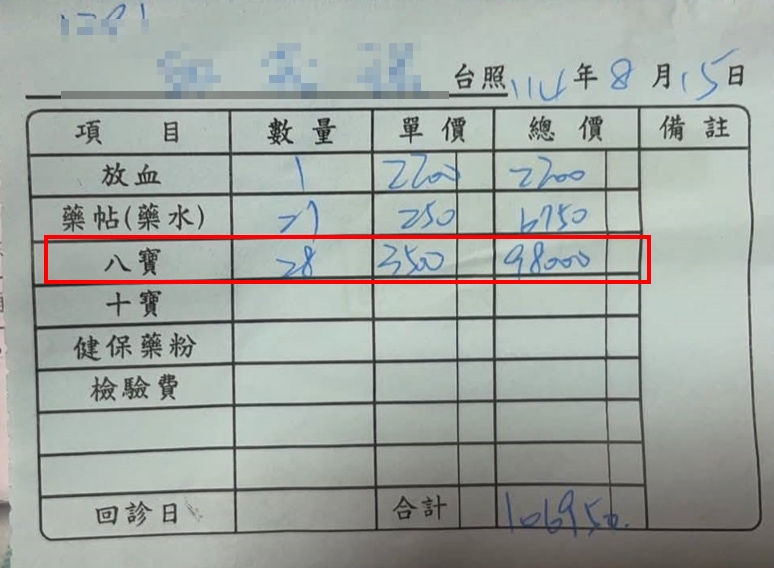 1281
台照114年8月15日
項目 數量 單價 總價 備註
放血 1 2200 2200
藥帖(藥水) 27 250 6750
八寶 28 3500 98000
十寶
健保藥粉
檢驗費
回診日 合計 106950.